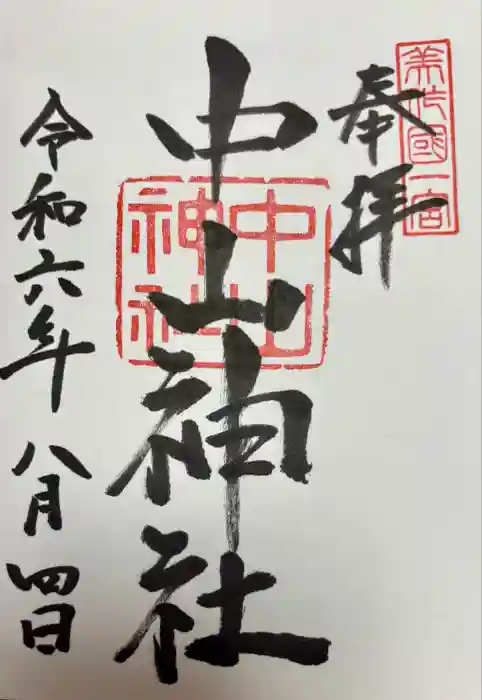 美作國一宮
奉拝
中山神社
中山神社
令和六年八月四日